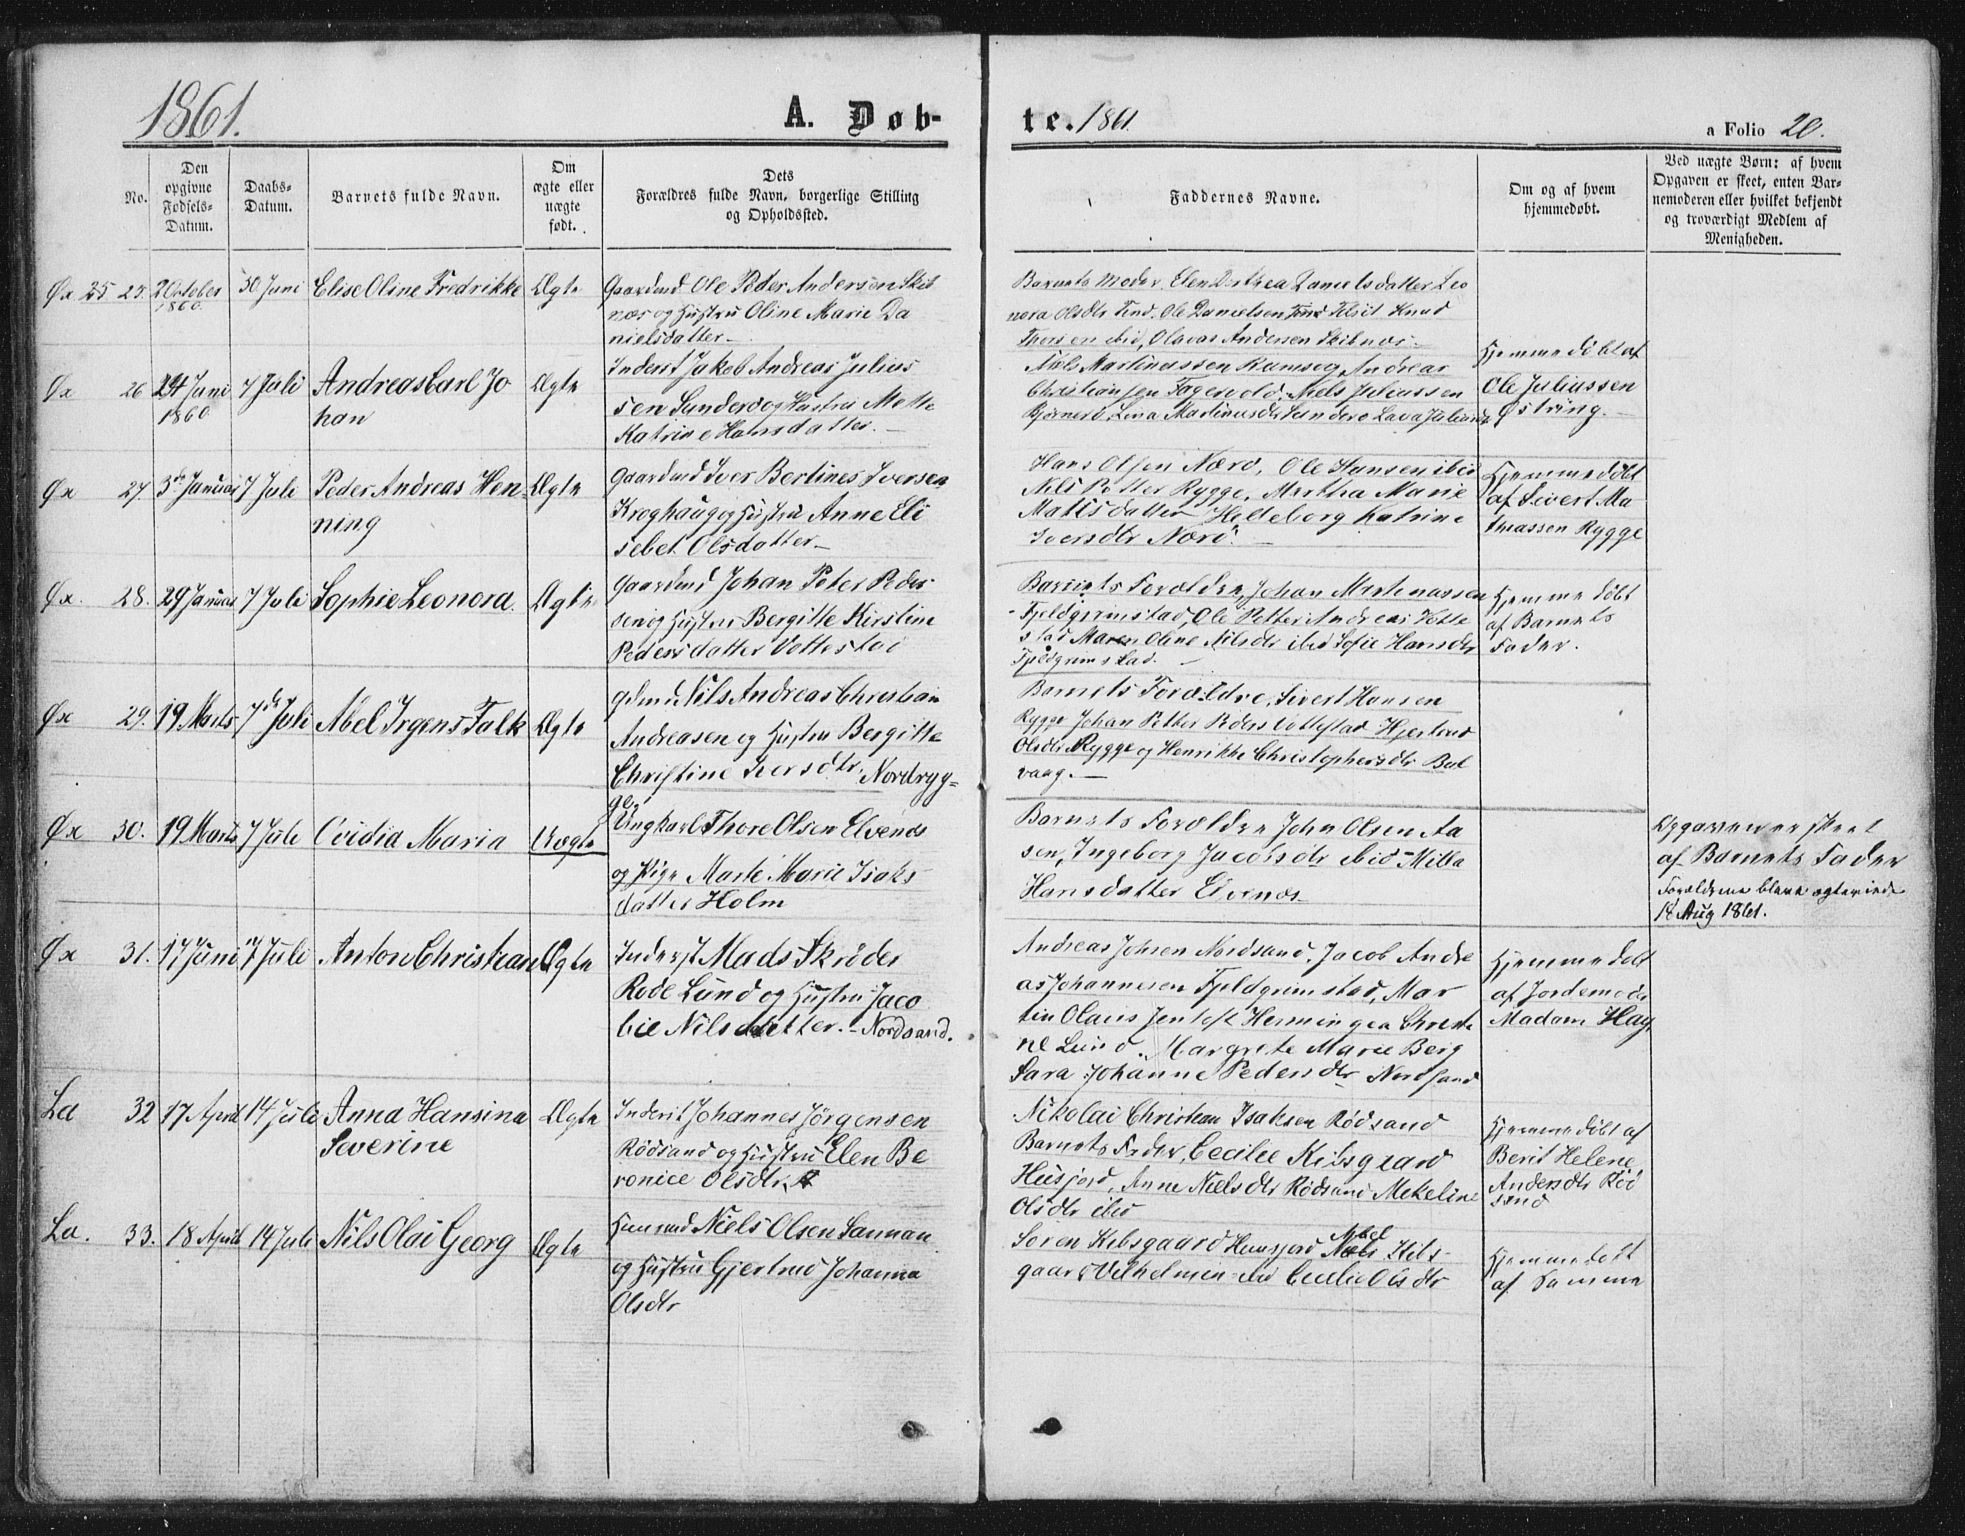 1861.
A. Døb-
te. 1861.
a Folio 20.
No.
Den
opgivne
Fødsels-
Datum.
Daabs-
Datum.
Barnets fulde Navn.
Om
ægte eller
uægte
født.
Dets
Forældres fulde Navn, borgerlige Stilling
og Opholdsted.
Faddernes Navne.
Om og af hvem
hjemmedøbt.
Ved uægte Børn: af hvem
Opgaven er skeet, enten Bar-
nemoderen eller hvilket bekjendt
og troværdigt Medlem af
Menigheden.
Øx 25 25. 2 October
1860.
30 Juni
Elise Oline Fredrikke
Ægte
Gaardmd Ole Peder Andersen Skib
næs og Hustru Oline Marie Da
nielsdatter.
Barnets Moder, Elen Dorthea Danielsdatter Leo
nora Olsdtr Find. Ole Danielsen Tilsit Knud
Thorsen ibid, Olavas Andersen Skibnæs.
Øx 26 24 Juni
1860
7 Juli
Andreas Carl Jo
han
Ægte
Inderst Jakob Andreas Julius
sen Sunderø og Hustru Mette
Katrine Hansdatter.
Niels Martinussen Ramsøg, Andreas
Christiansen Fagervold, Niels Juliussen
Bjørnerø, Lina Martinusdtr Lava Juliusdtr
Hjemmedøbt af
Ole Juliussen
Østring.
Øx 27 3de Januar 7 Juli
Peder Andreas Hen
ning
Ægte
Gaardmd Iver Bertines Iversen
Kroghaug og Hustru Anne Eli
sebet Olsdatter
Hans Olsen Nærø, Ole Hansen ibid
Nils Petter Rygge, Martha Marie
Matisdatter Hildeborg Katrine
Iversdtr Nærø.
Hjemmedøbt
af Sivert Ma
thiassen Rygge
Øx. 28. 29 Januar 7 Juli
Sophie Leonora.
Ægte
Gaardmd Johan Peter Peder
sen og Hustru Bergitte Kirstine
Pedersdatter Vottestad
Barnets Forældre, Johan Martinussen
Fjeldgrimstad, Ole Petter Andreas Votte
stad Maren Oline Nilsdtr ibid Sofie Hansdtr
Fjeldgrimstad.
Hjemmedøbt
af Barnets
Fader.
Øx 29. 19 Marts 7de Juli
Abel Irgens Falk
Ægte
Gdmd Nils Andreas Christian
Andreasen og Hustru Bergitte
Christine Iversdtr. Nordryg=
ge,
Barnets Forældre, Sivert Hansen
Rygge Johan Petter Peders Vottestad Hjertrud
Olsdtr Rygge og Henrikke Christophersdtr Bal
vaag.
Øx 30. 19 Marts 7 Juli
Ovidia Maria
Uægte
Ungkarl Thore Olsen Elvenæs
og Pige Marte Marie Isaks
datter Holm
Barnets Forældre John Olsen Aa
sen, Ingeborg Jacobsdtr ibid Milla
Hansdatter Elvenæs
Opgaven er skeet
af Barnets Fader
Forældrene bleve egteviede
18 Aug 1861.
Øx 31. 17 Juni 7 Juli
Anton Christian
Ægte
Inderst Mads Skrøder
Rode Lund og Hustru Jaco
bie Nilsdatter. Nordsand.
Andreas Johsen Nordsand, Jacob Andre
as Johannesen Fjeldgrimstad, Mar
tin Olaus Jentoft Herminge Christi
ne Lund. Margrete Marie Berg
Sara Johanne Pedersdtr Nordsand
Hjemmedøbt
af Jordemoder
Madam Hay,
La 32 17 April 14 Juli
Anna Hansina
Severine
Ægte
Inderst Johannes Jørgensen
Rødsand og Hustru Elen Be
ronice Olsdtr.
Nikolai Christian Isaksen Rødsand
Barnets Fader, Cecilie Kibsgaard
Husjord, Anne Nielsdtr Rødsand Mekeline
Olsdtr ibid
Hjemmedøbt af
Berit Helene
Andersdtr Rød
sand
La. 33. 18 April 14 Juli
Nils Olai Georg
Ægte
Huusmd Niels Olsen Sannan
og Hustru Gjertrud Johanna
Olsdtr
Søren Kibsgaard Huusjord Kibs-
gaard Vilhelmine ibid Cecilie Olsdtr
Hjemmedøbt
af Samme